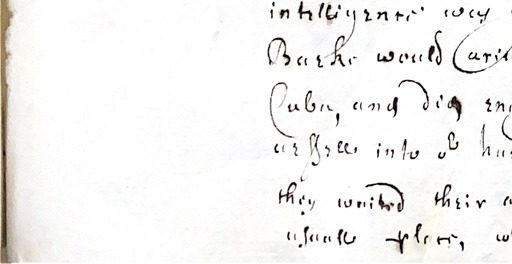 intelligence way
Barke would Carie
Cuba, and did eng
into oʳ han
they waited their a
usuall place, w